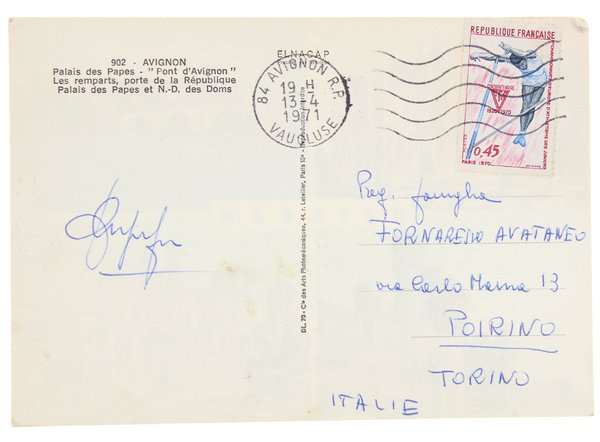 902 - AVIGNON
Palais des Papes - "Pont d'Avignon"
Les remparts, porte de la République
Palais des Papes et N.-D. des Doms
ELNACAP
84 AVIGNON R.P.
19 H
13-4
1971
VAUCLUSE
REPUBLIQUE FRANÇAISE
1920-1970
0,45
POSTES
PARIS 1970
DL. 70 - Cie des Arts Photomécaniques, 44, r. Letellier, Paris 15e - Reproduction interdite
Preg. famiglia
FORNARESIO AVATANEO
via Carlo Manna 13
POIRINO
TORINO
ITALIE